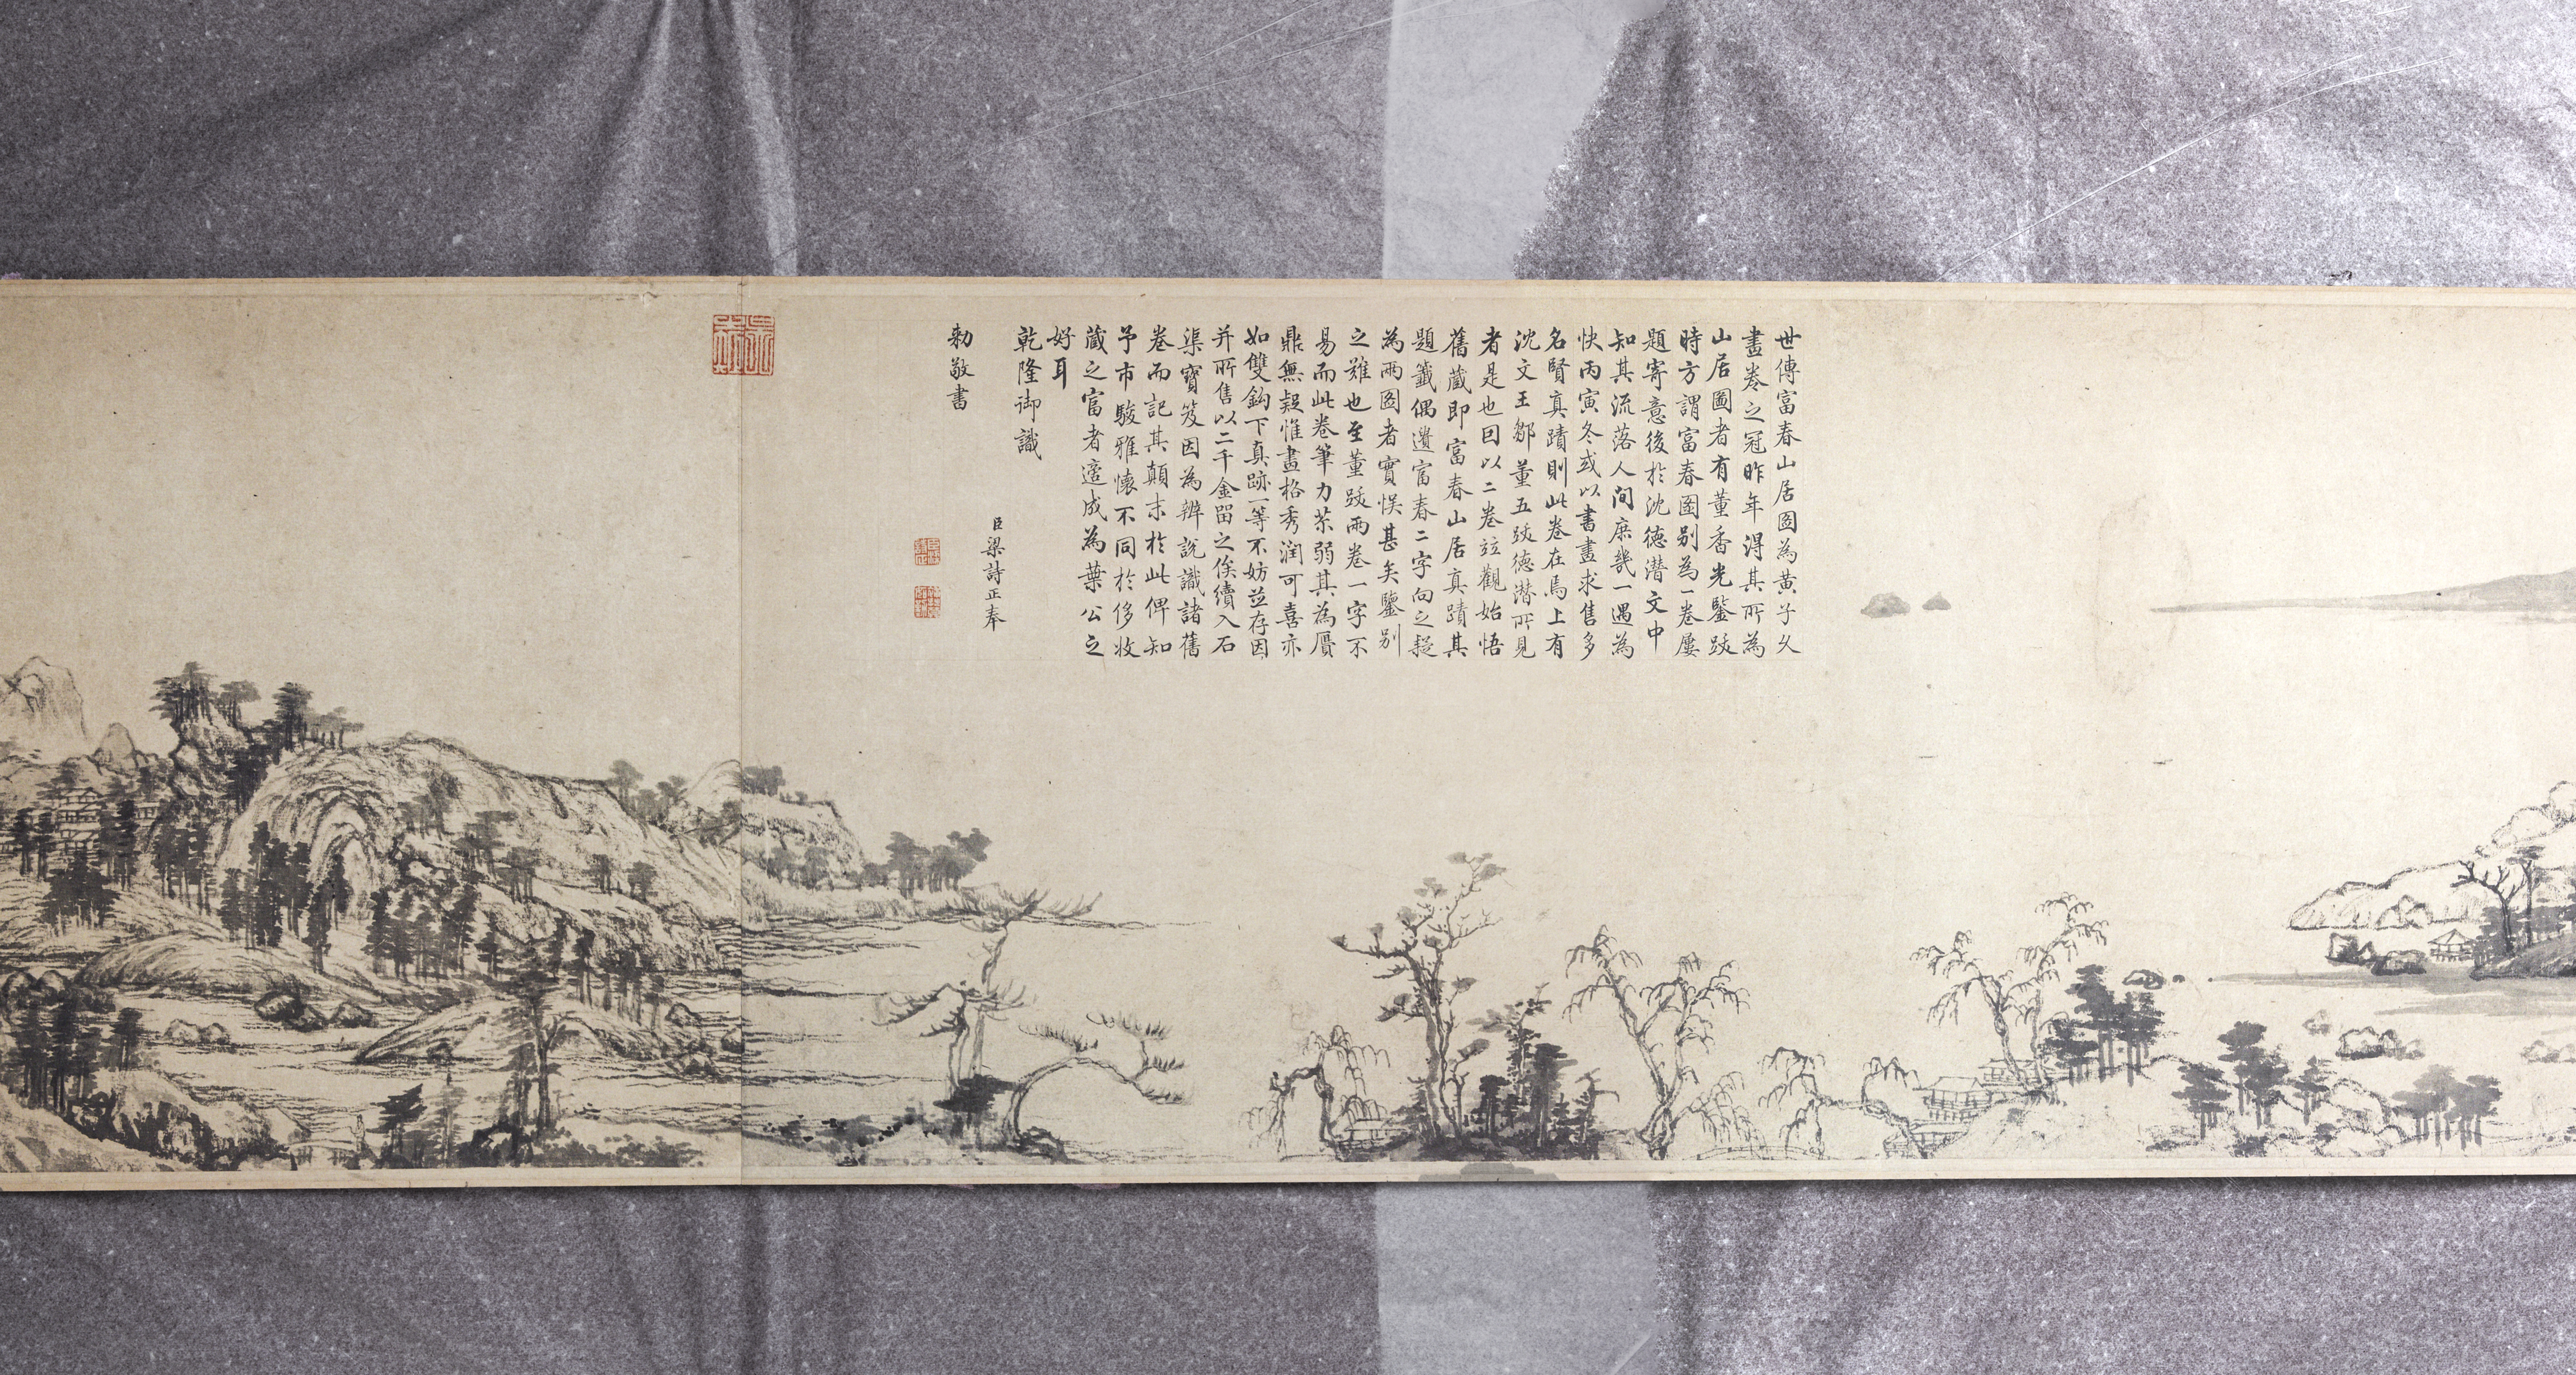 世傳富春山居圖為黃子久
畫卷之冠昨年得其所為
山居圖者有董香光鑒跋
時方謂富春圖别為一卷屢
題寄意後於沈德潛文中
知其流落人間庶幾一遇為
快丙寅冬或以書畫求售多
名賢真蹟則此卷在焉上有
沈文王鄒董五跋德潛所見
者是也因以二卷竝觀始悟
舊藏即富春山居真蹟其
題籤偶遺富春二字向之疑
為兩圖者實悞甚矣鑒别
之難也至董跋兩卷一字不
易而此卷筆力苶弱其為贋
鼎無疑惟畫格秀潤可喜亦
如雙鈎下真跡一等不妨竝存因
并所售以二千金留之俟續入石
渠寶笈因為辨說識諸舊
卷而記其顛末於此俾知
予市駿雅懷不同於侈收
藏之富者適成為葉公之
好耳
乾隆御識
臣梁詩正奉
勅敬書